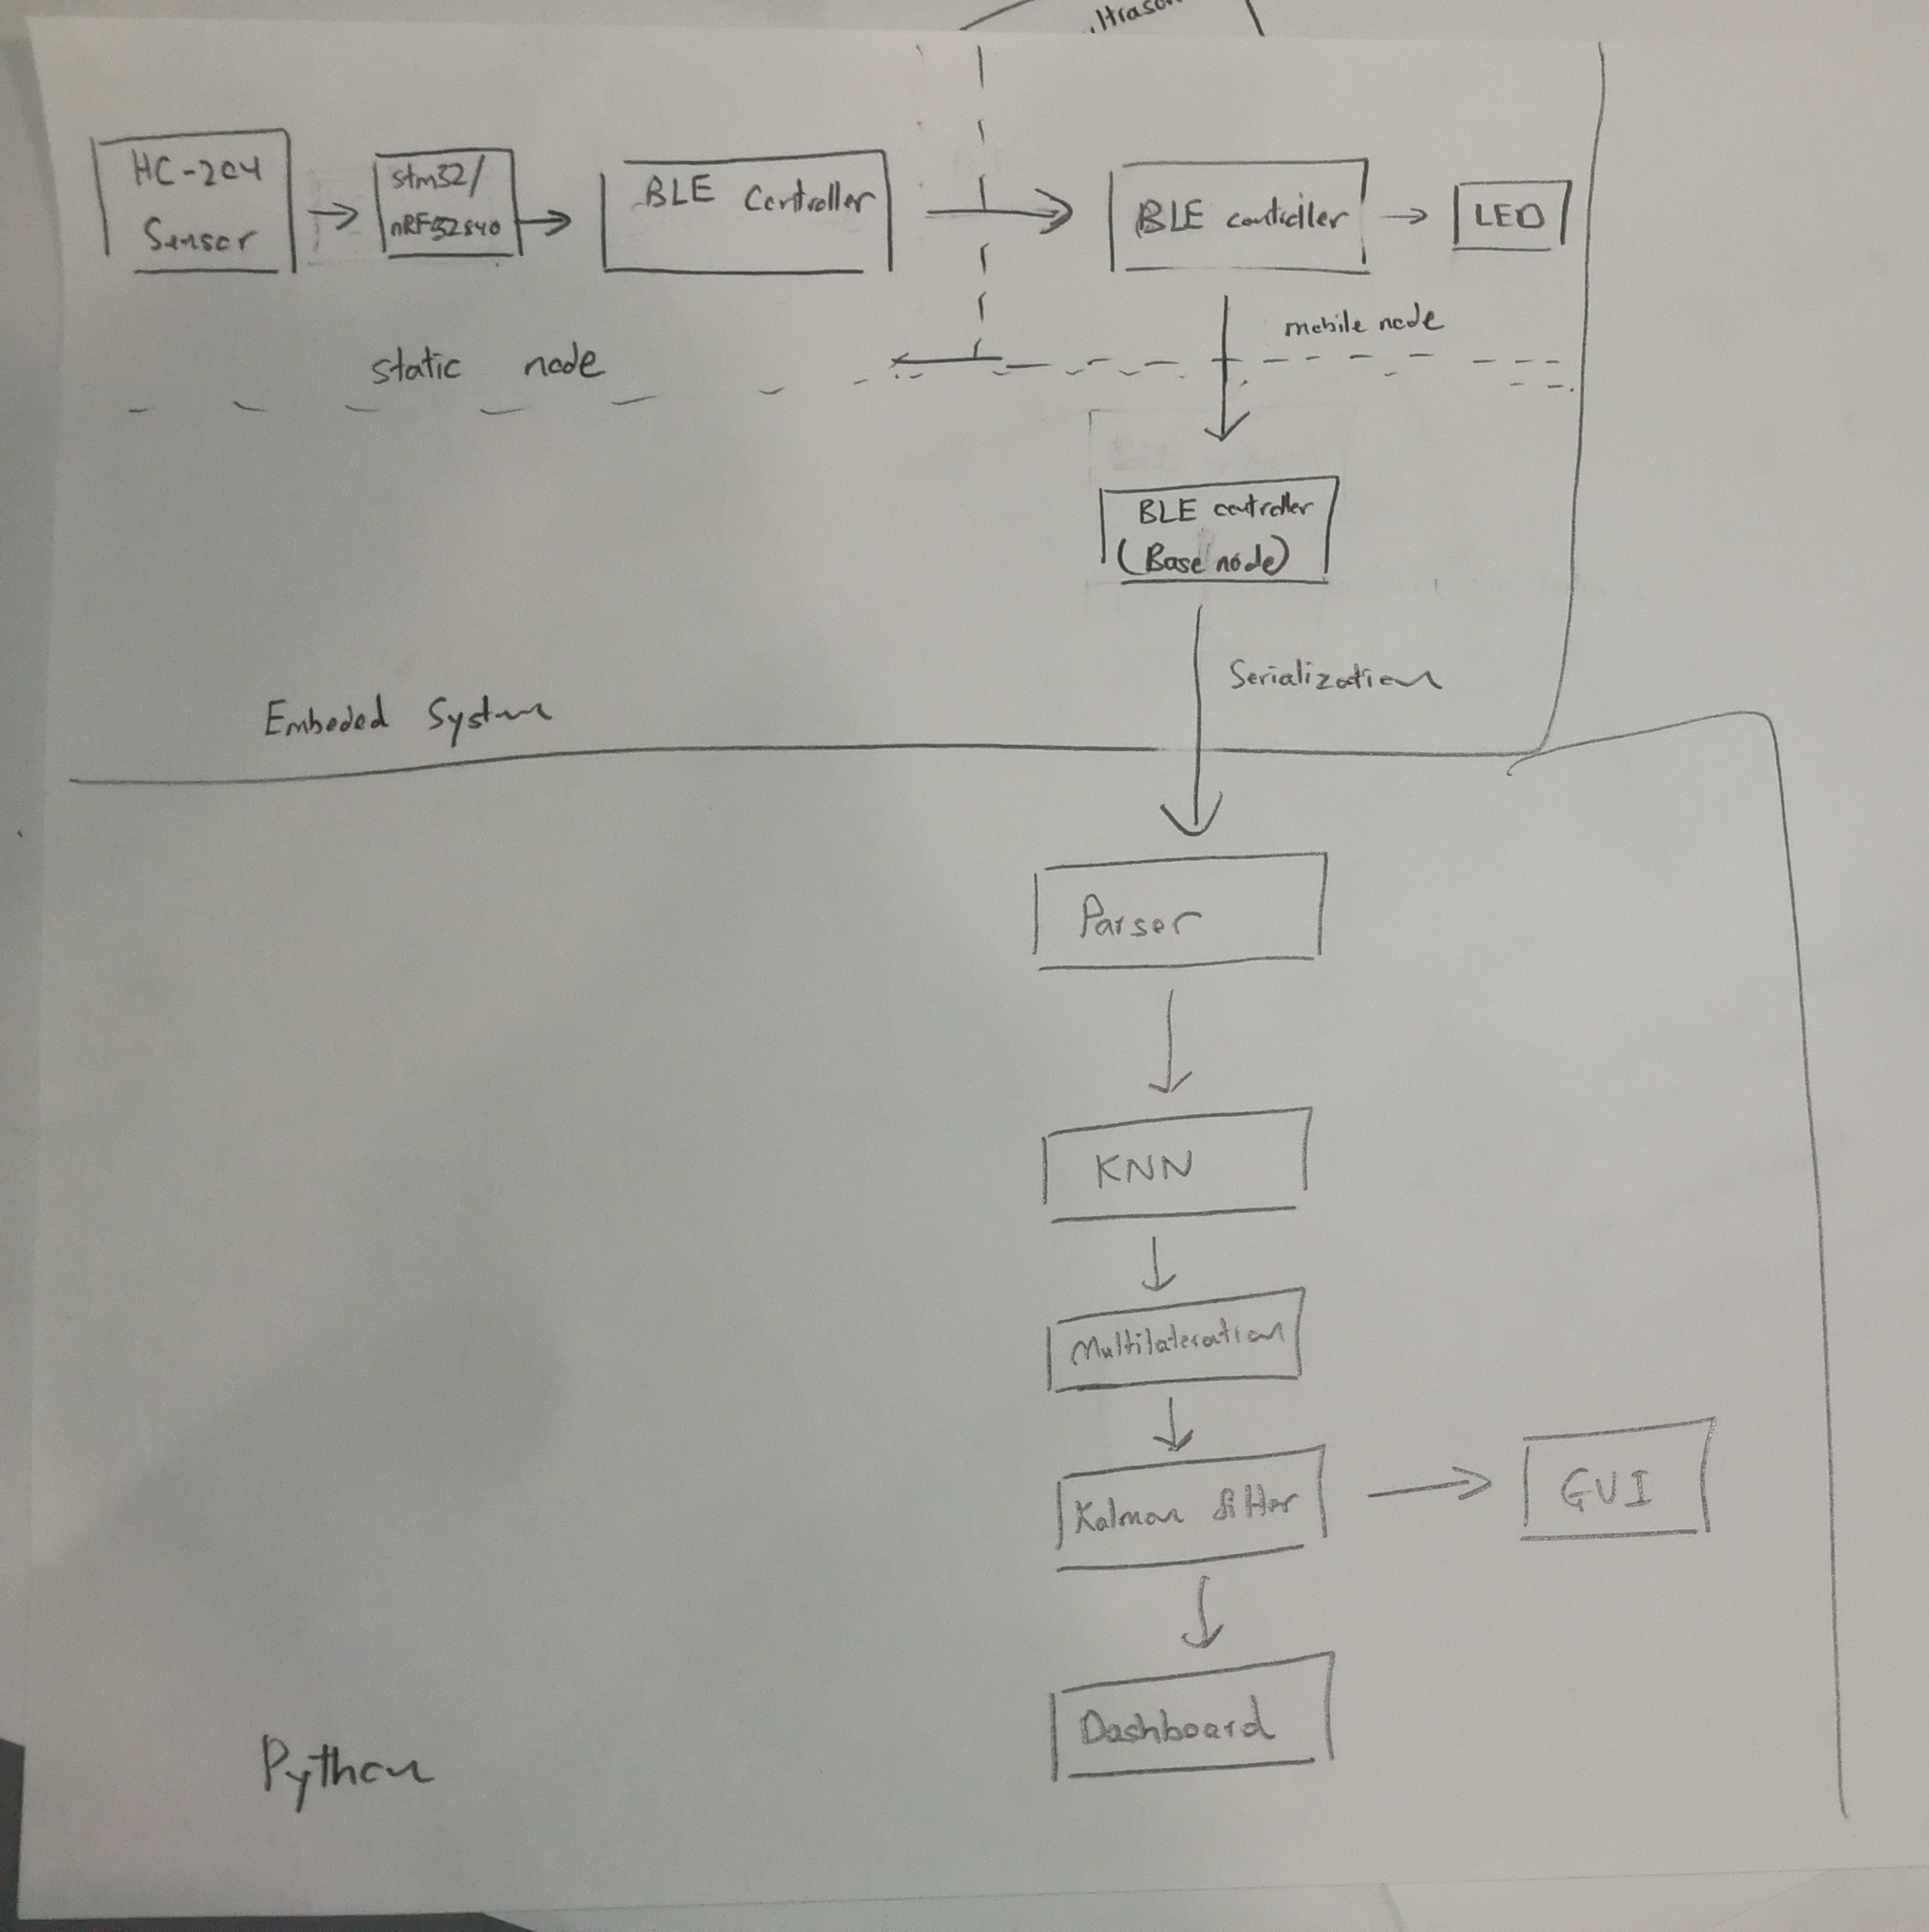 HC-204
Sensor
stm32/
nRF52840
BLE Controller
BLE controller
LED
mobile node
static node
BLE controller
(Base node)
Serialization
Embeded System
Parser
KNN
Multilateration
Kalman filter
GUI
Dashboard
Python